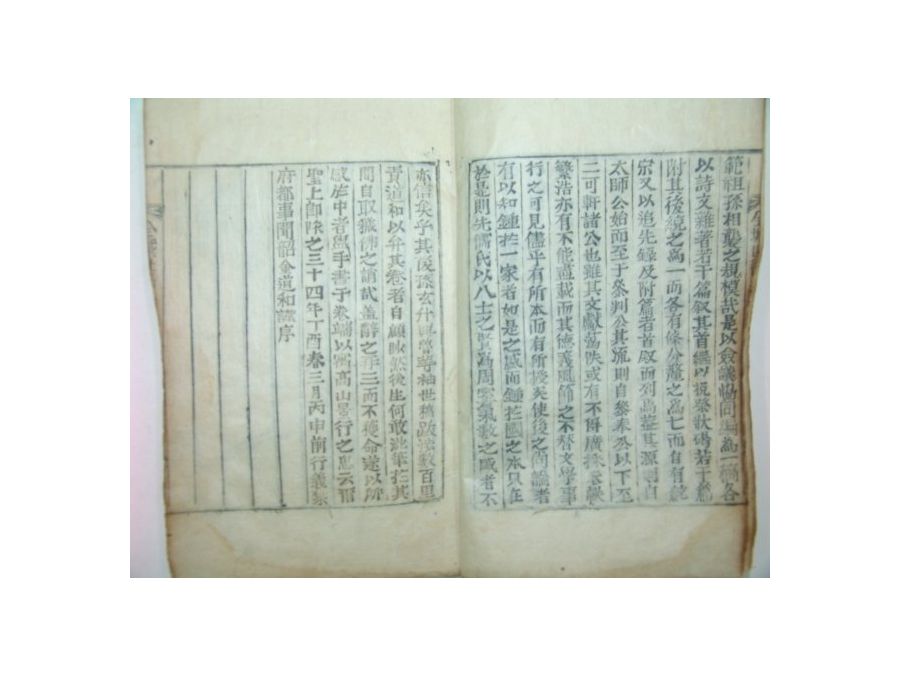 範祖孫相襲之規模哉是以僉議協同編爲一稿各
以詩文雜著若干篇叙其首繼以挽祭狀碣若干篇
附其後統之爲一而各有條分釐之爲七而自有
宗又以追先錄及附篇者首叙而列焉其源則自
太師公始而至于參判公其流則自參奉公以下至
二可軒諸公也雖其文獻蕩佚或有不得廣採
繁浩亦有不能盡載而其德義風節之不替文學事
行之可見儘乎有所本而有所後矣使後之尙論者
有以知鍾於一家者如是之盛而鍾於國之本只在
於是則先儒氏以八士之賢爲周家氣數之盛者不
亦信矣乎其後孫玄弁甫袖世稿跋涉數百里
責道和以弁其卷者自顧昧然後生何敢泚筆於其
間自取獵佛之誚哉盖辭之再三而不獲命遂以所
感於中者與手書于卷端以寓高山景行之思云爾
聖上卽阼之三十四年丁酉春三月丙申前行義禁
府都事聞韶金道和謹序